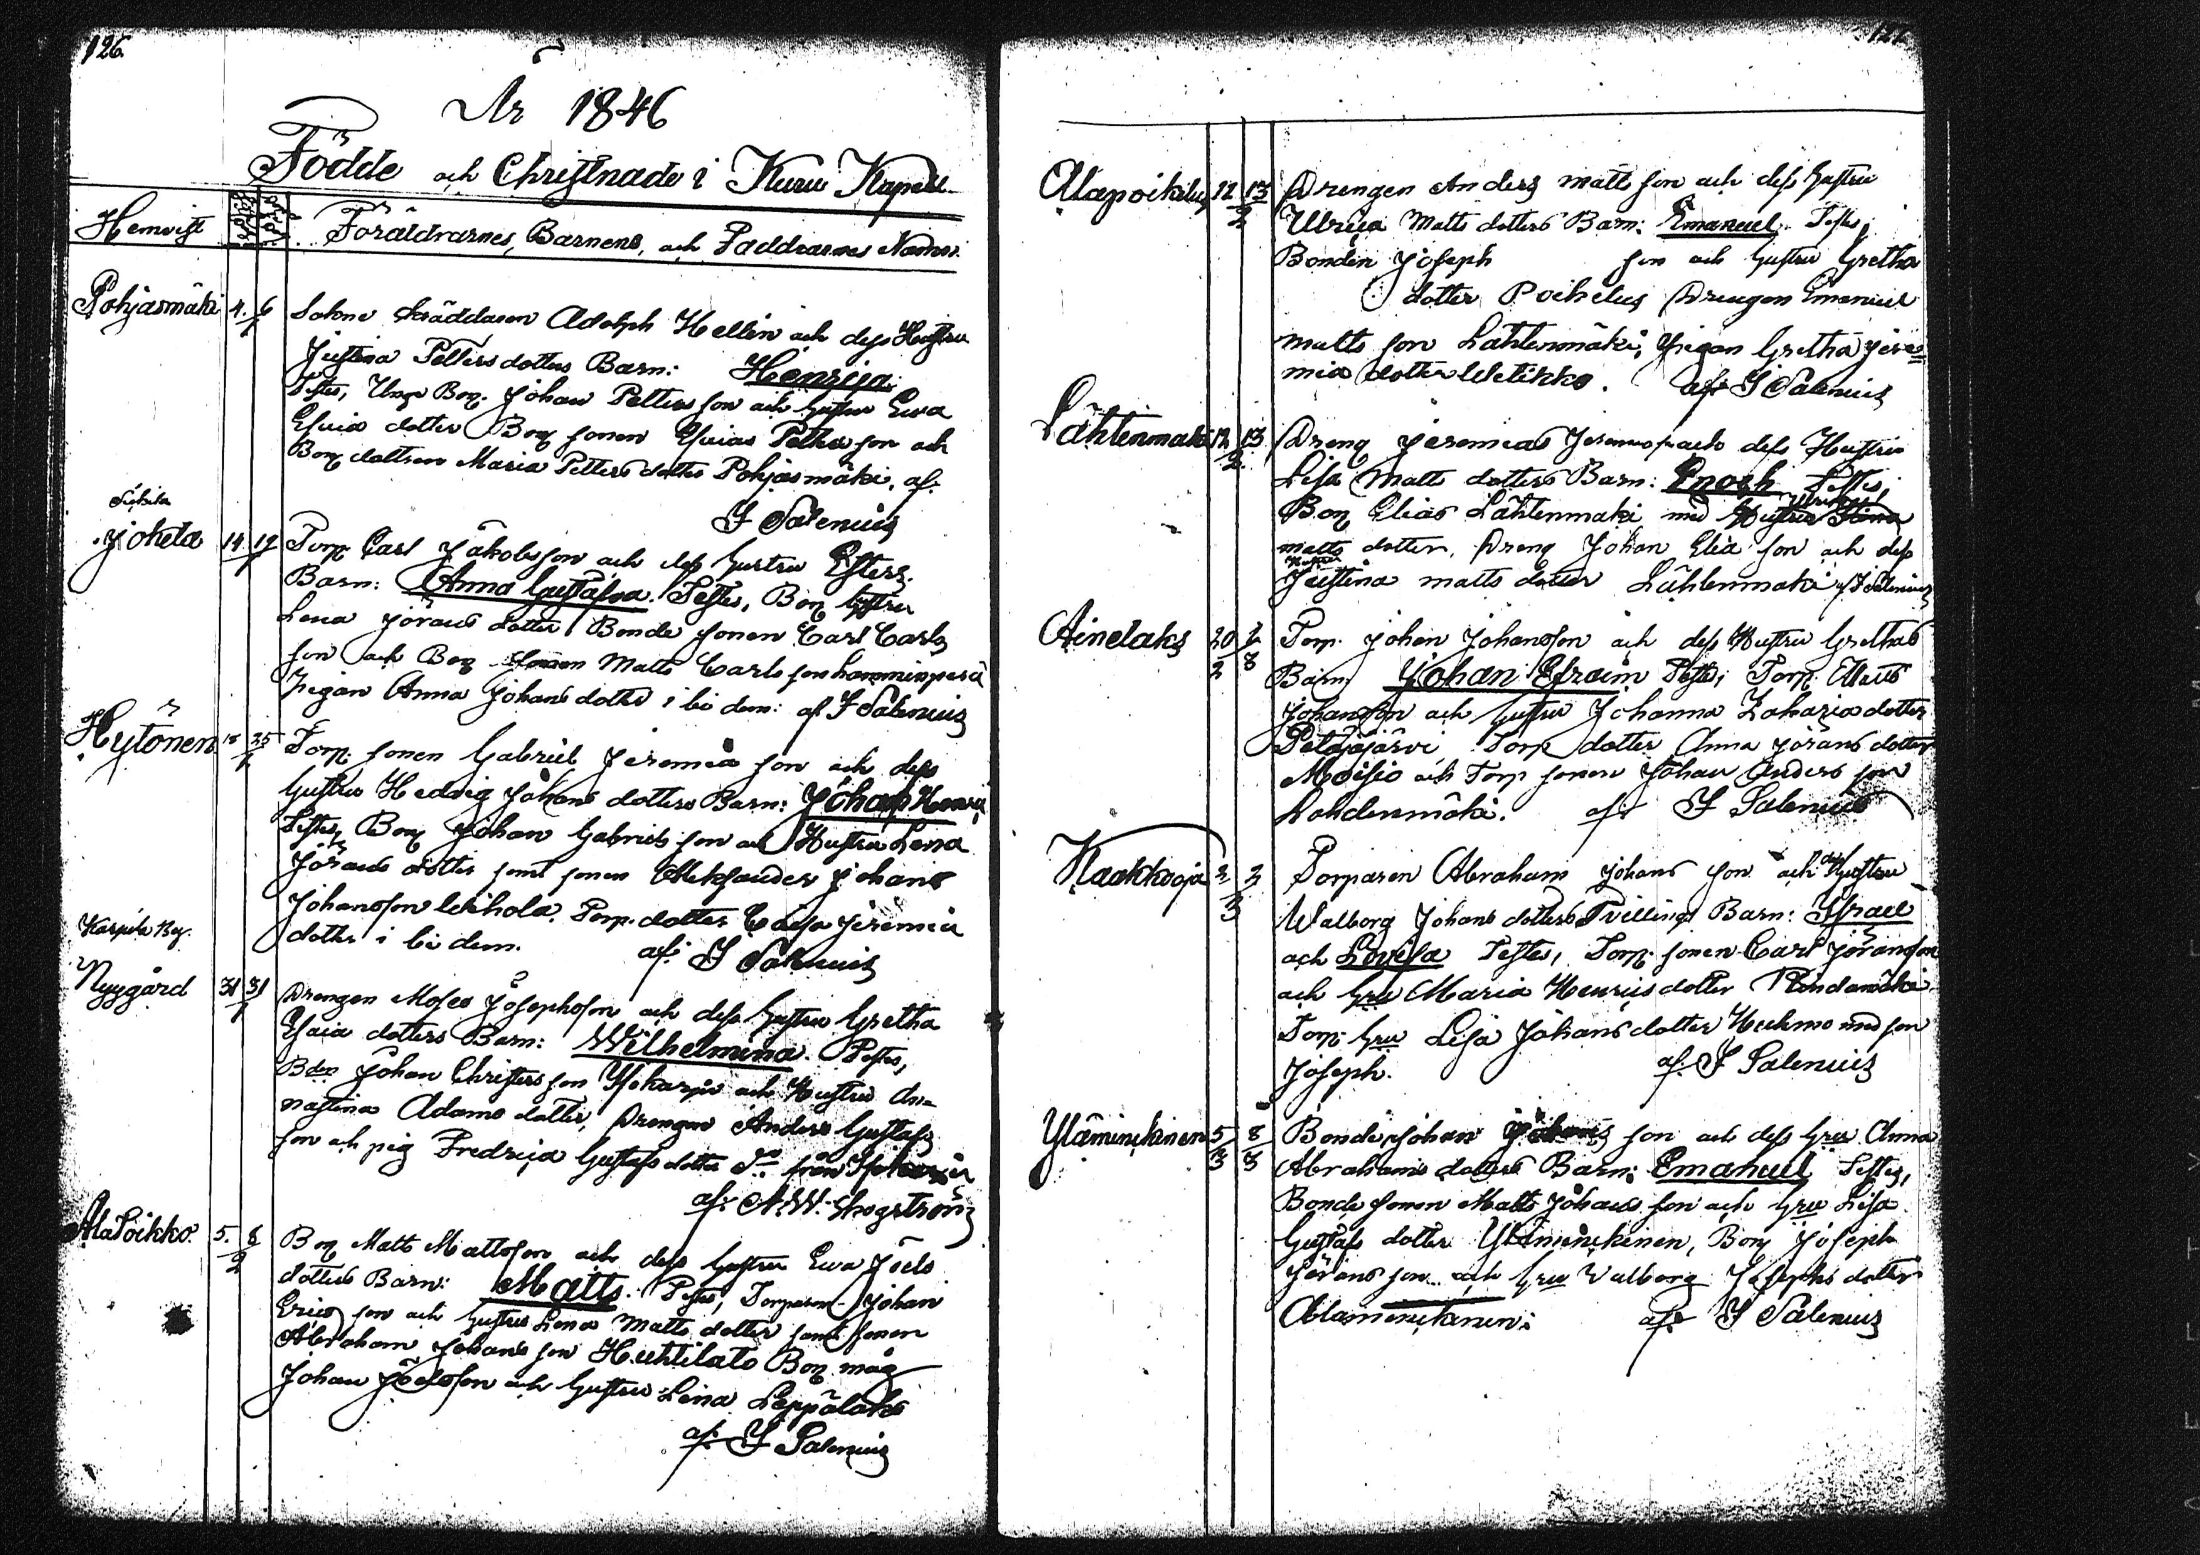 126.
År 1846
Födde och Christnade i Kuru Kapell
Hemvist
Föräldrarnes, Barnens, och Faddrarnes Namn.
Pohjasmäki 4. 6/1 Sokne skräddaren Adolph Hellin och dess Hustru
Justina Petters dotters Barn: Henrica.
Testes, Unge Bon. Johan Petters son och hustru Ewa
Esaia dotter Bon sonen Esaias son och
Bon dottren Maria Petters dotter Pohjasmäki, af.
I Salenius
Jokela 14 19/1 Torp. Carl Jakobsson och dess hustru Esters
Barn: Anna Gustafva. Testes, Bon hustru
Lena Jörans dotter Bonde sonen Carl Carls
son och Bon sonen Matts Carls son
Pigan Anna Johans dotter i bi dem: af I Salenius
Hytönen 25/1 Torp. sonen Gabriel Jeremia son och dess
hustru Hedvig Johans dotters Barn: Johan
Testes, Bon Johan Gabriels son och Hustru Lena
Jörans dotter samt sonen Aleksander Johans
Johansson Torp. dotter Caisa Jeremia
dotter i bi dem. af. I Salenius
Karpila By.
Nygård 31 31/1 Drengen Moses Josephsson och dess hustru Gretha
Esaia dotters Barn: Wilhelmina. Testes,
Bden Johan Christers son och Hustru An-
nastina Adams dotter, Drengen Anders Gustafs
son och pig Fredrica Gustafs dotter från
af. A. W. Skogström
AlaPoikko. 5. 8/2 Bon Matts Mattsson och dess hustru Ewa Joels
dotters Barn: Matts. Testes, Torparen Johan
Erics son och hustru Lena Matts dotter samt sonen
Abraham Johans son Huhtilato Bon måg
Johan Joelsson och hustru Lena Leppälaks
af. I Salenius
Alapoikelus 12 13/2 Drengen Anders Matts son och dess hustru
Ulrica Matts dotters Barn: Emanuel. Testes,
Bonden Joseph son och hustru Gretha
dotter Poikelus Drengen Emanuel
Matts son Lähtenmäki, Pigan Gretha Jere=
mia dotter af. I Salenius
Lähtenmäki 12 13/2 Dreng Jeremias och dess Hustru
Lisa Matts dotters Barn: Enoch Testes,
Bon Elias Lähtenmäki med Hustru
Matts dotter, Dreng Johan Elia son och dess
Hustru
Justina Matts dotter Lähtenmäki af I Salenius
Ainelaks 20/2 Torp. Johan Johansson och dess Hustru Grethas
Barn Johan Efraim Testes, Torp. Matts
Johansson och hustru Johanna Zakaria dotter
Petäjäjärvi Torp dotter Anna Jörans dotter
Moisio och Torp sonen Johan Anders son
Lohdenmäki. af: I Salenius
Kaakkooja 2 2/3 Torparen Abraham Johans son och dess Hustru
Walborg Johans dotters Tvillings Barn: Israel
och Lovisa Testes, Torp. sonen Carl Jöransson
och Hru Maria Henrics dotter
Torp. Hru Lisa Johans dotter Kuhmo med son
Joseph. af. I Salenius
Yläminckinen 5/3 8/3 Bonde Johan Johans son och dess Hru Anna
Abrahams dotters Barn: Emanuel Testes,
Bonde sonen Matts Johans son och Hru Lisa
Gustafs dotter Yläminckinen, Bon Joseph
Jörans son och Hru Valborg Josephs dotter
Alaminckinen: af. I Salenius